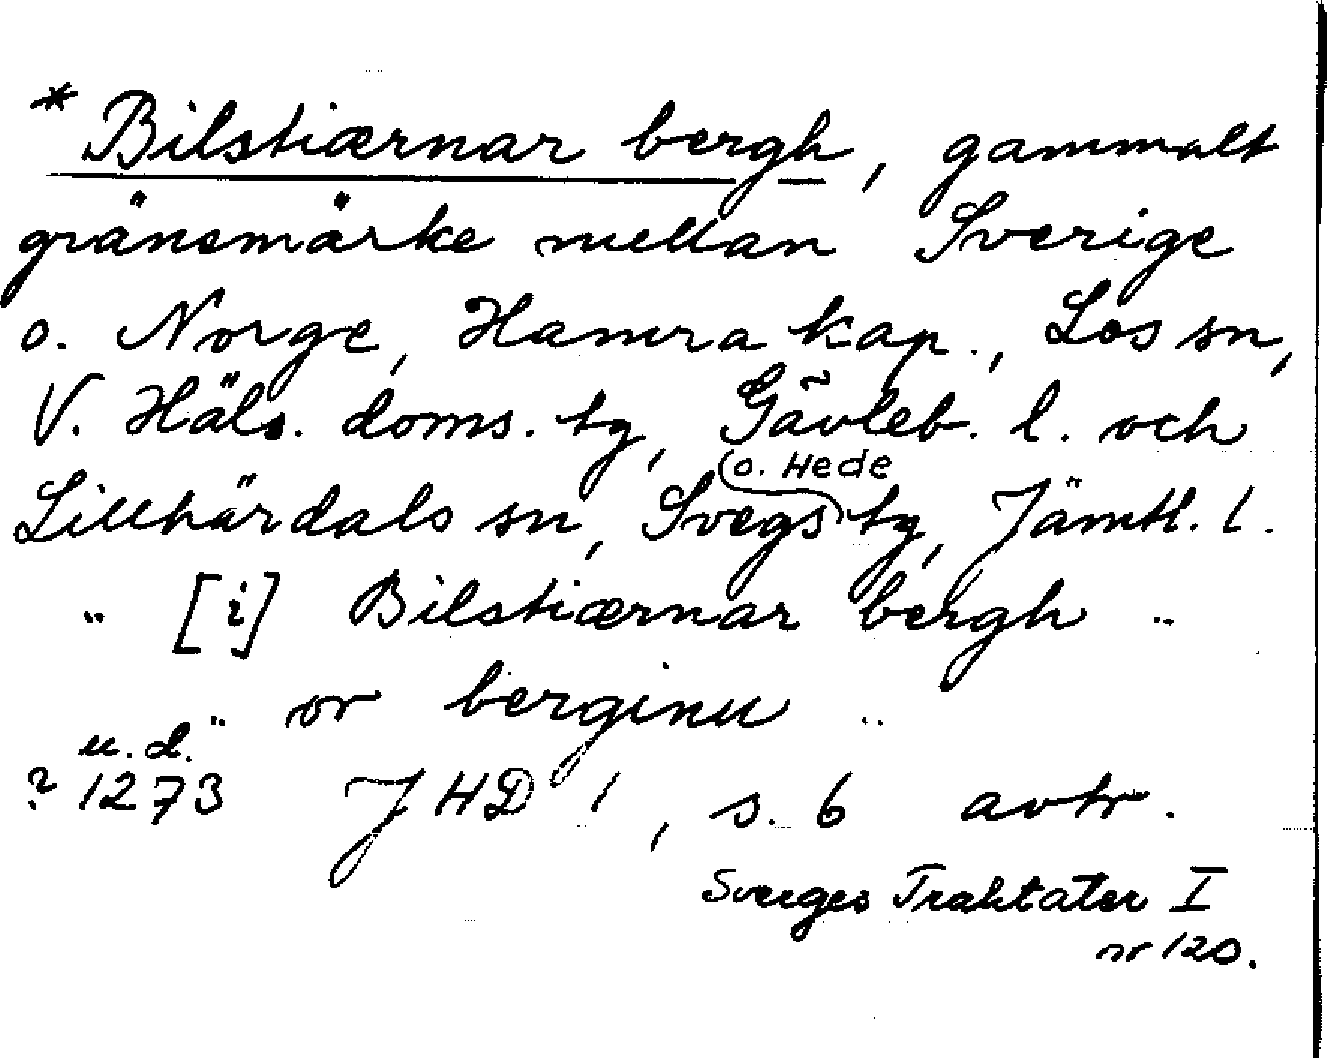 * Bilstiærnar bergh, gammalt
gränsmärke mellan Sverige
o. Norge, Hamra kap., Los sn,
V. Häls. doms. tg, Gävleb. l. och
Lillhärdals sn, Svegs o. Hede tg, Jämtl. l.
" [i] Bilstiærnar bergh "
" or berginu "
u.d.
? 1273 JHD 1, s. 6 avtr.
Sverges Traktater I
nr 120.